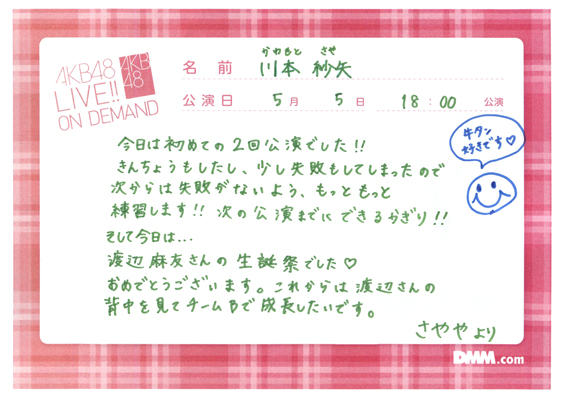 AKB48
LIVE!!
ON DEMAND
AKB
48
名前
かわもと さや
川本 紗矢
公演日 5月 5日 18:00 公演
今日は初めての2回公演でした!!
きんちょうもしたし、少し失敗もしてしまったので
次からは失敗がないよう、もっともっと
練習します!! 次の公演までにできるかぎり!!
そして今日は...
渡辺麻友さんの生誕祭でした♡
おめでとうございます。これからは渡辺さんの
背中を見てチームBで成長したいです。
さややより
牛タン
好きです♡
DMM.com